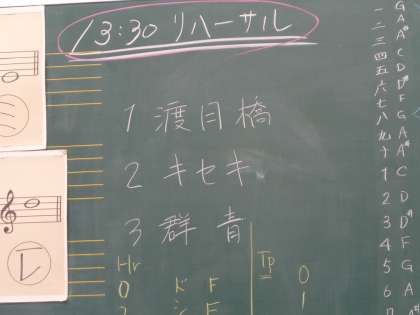 13:30 リハーサル
1 渡月橋
2 キセキ
3 群青
Hr
0 ド F
Tp
0
1
一 G
二 A
三 A#
四 C
五 D
六 D#
七 F
八 G
九 A
十 A#
1 C
2 D
3 D#
4 F
5 G
6 A